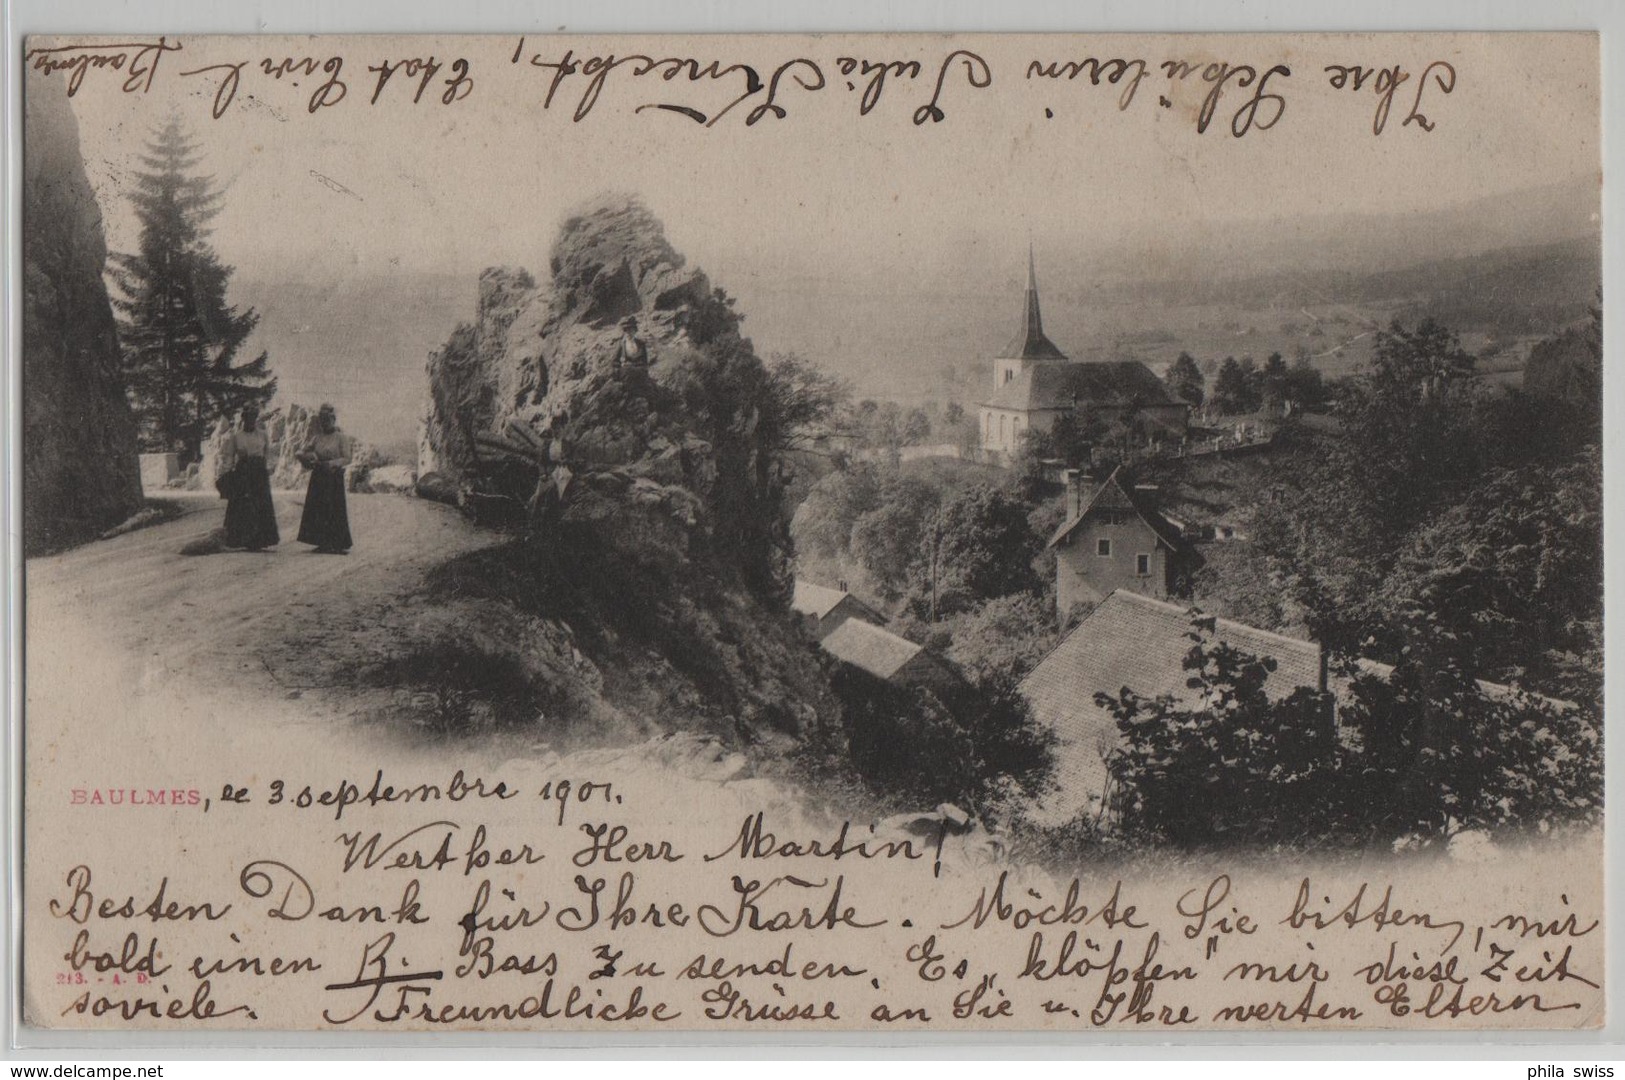 BAULMES, le 3. septembre 1901.
Werther Herr Martin!
Besten Dank für Ihre Karte. Möchte Sie bitten, mir
bald einen R. Bass zu senden. Es „klöpfen" mir diese Zeit
soviele. Freundliche Grüsse an Sie u. Ihre werten Eltern
213. - A. D.
Ihre Schülerin Julie Knecht, Etat Civil Baulmes
www.delcampe.net
phila swiss